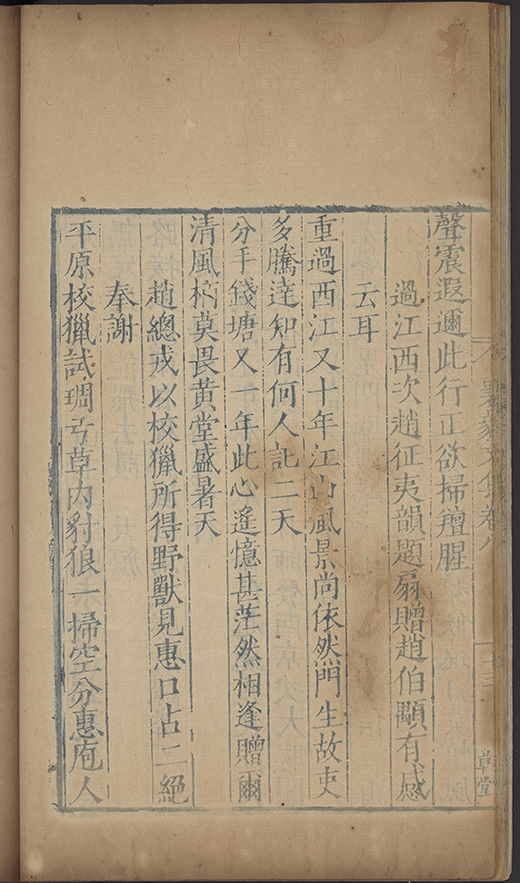 聲震遐邇此行正欲掃羶腥
過江西次趙征夷韻題扇贈趙伯顒有感
云耳
重過西江又十年江山風景尚依然門生故吏
多騰達知有何人託二天
分手錢塘又一年此心遙憶甚茫然相逢贈爾
清風柄莫畏黃堂盛暑天
趙總戎以校獵所得野獸見惠口占二絕
奉謝
平原校獵試琱弓草內豺狼一掃空分惠庖人
文集卷八
十三
草堂